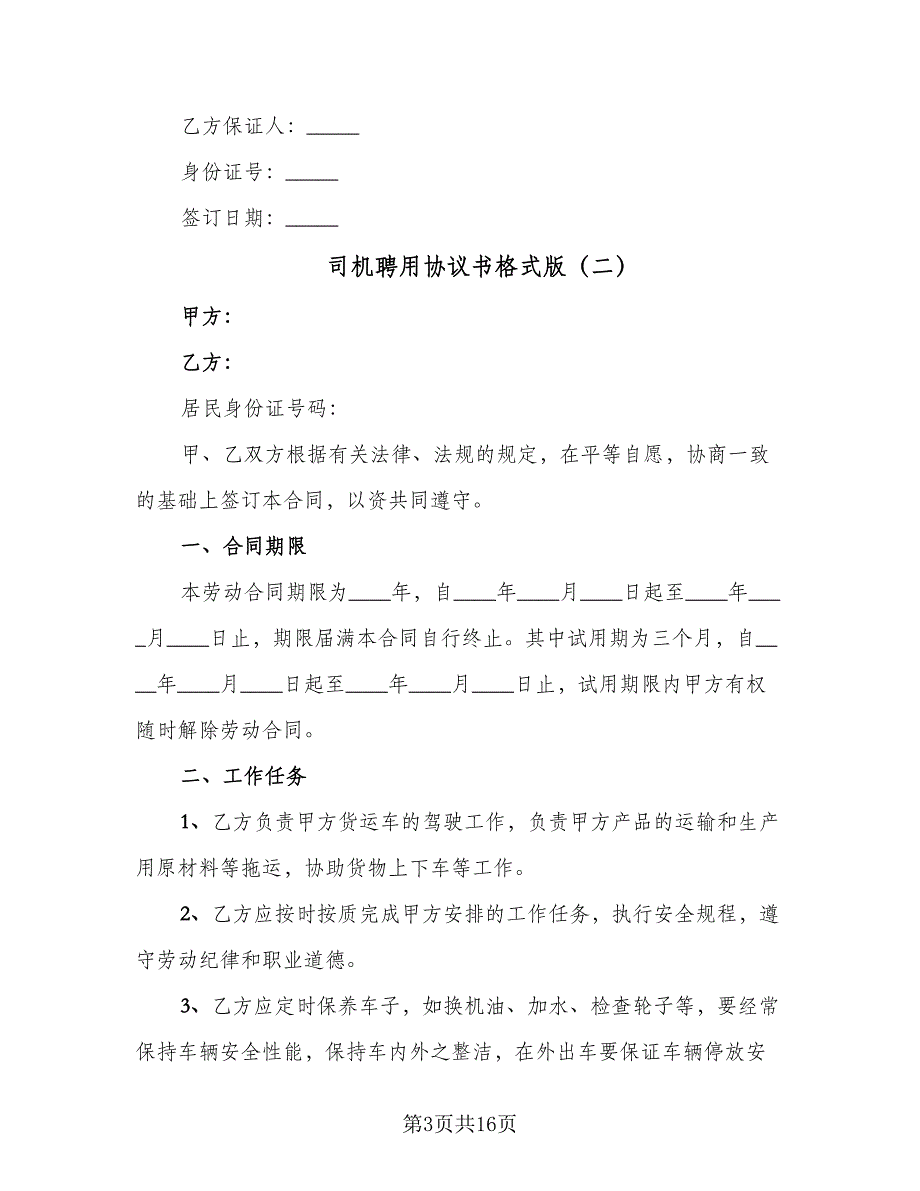 乙方保证人：_____
身份证号：_____
签订日期：_____
司机聘用协议书格式版（二）
甲方：
乙方：
居民身份证号码：
甲、乙双方根据有关法律、法规的规定，在平等自愿，协商一致
的基础上签订本合同，以资共同遵守。
一、合同期限
本劳动合同期限为____年，自____年____月____日起至____年___
_月____日止，期限届满本合同自行终止。其中试用期为三个月，自__
__年____月____日起至____年____月____日止，试用期限内甲方有权
随时解除劳动合同。
二、工作任务
1、乙方负责甲方货运车的驾驶工作，负责甲方产品的运输和生产
用原材料等拖运，协助货物上下车等工作。
2、乙方应按时按质完成甲方安排的工作任务，执行安全规程，遵
守劳动纪律和职业道德。
3、乙方应定时保养车子，如换机油、加水、检查轮子等，要经常
保持车辆安全性能，保持车内外之整洁，在外出车要保证车辆停放安
第3页共16页